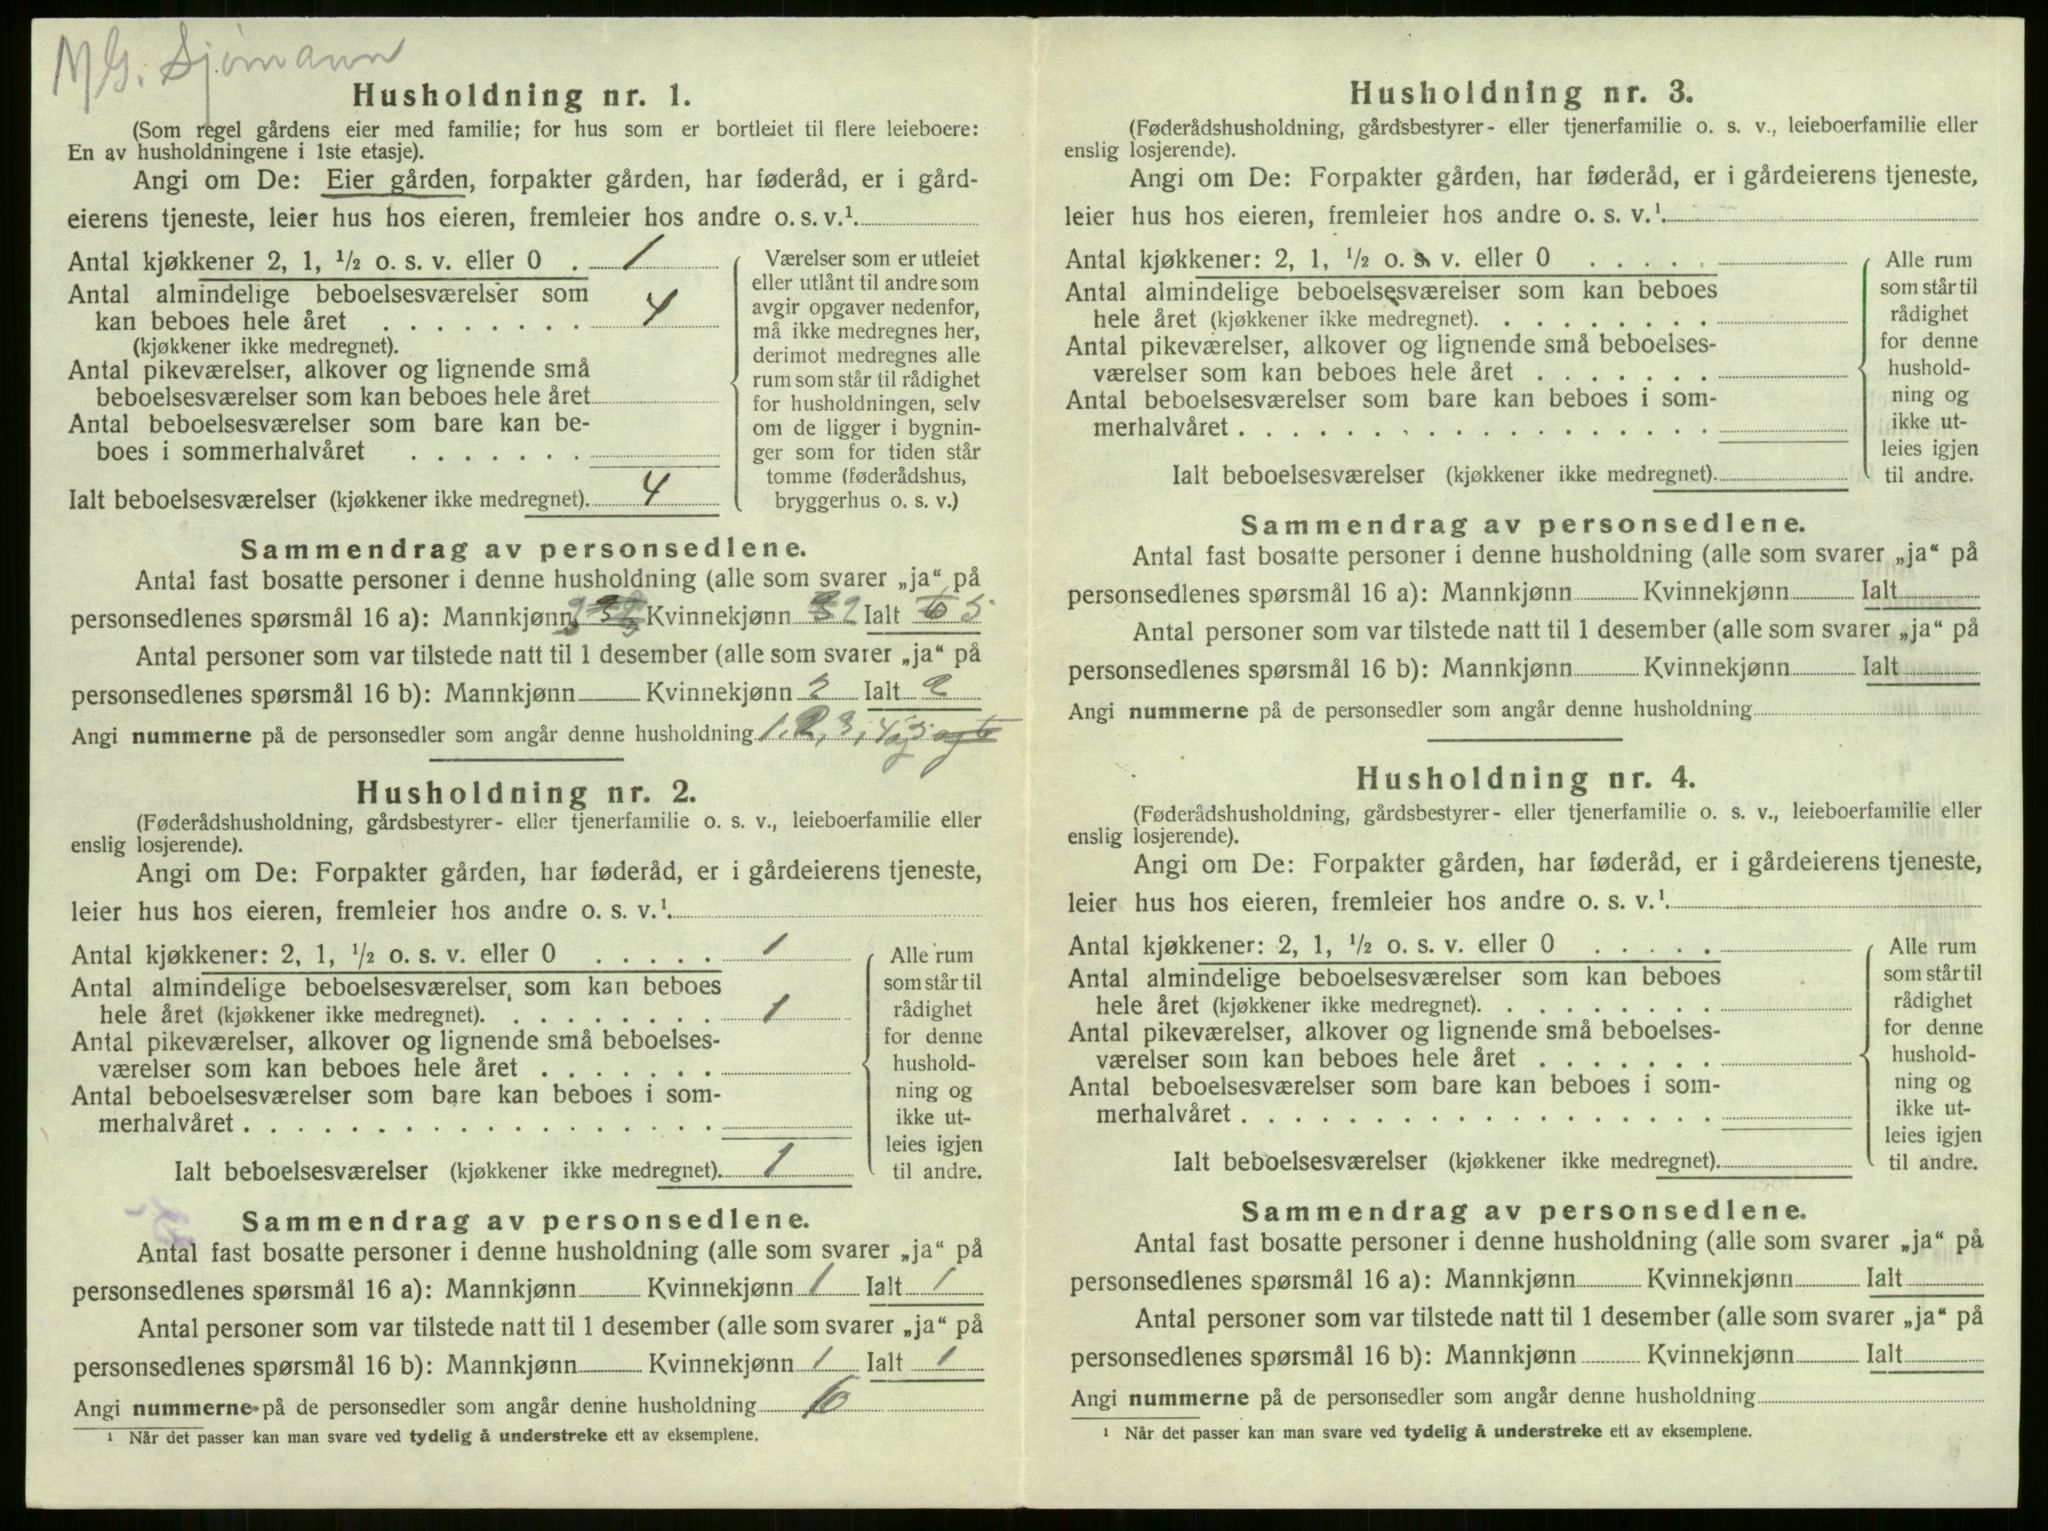 M G. Sjömann
Husholdning nr. 1.
(Som regel gårdens eier med familie; for hus som er bortleiet til flere leieboere:
En av husholdningene i 1ste etasje).
Angi om De: Eier gården, forpakter gården, har føderåd, er i gård-
eierens tjeneste, leier hus hos eieren, fremleier hos andre o. s. v.¹
Antal kjøkkener 2, 1, ½ o. s. v. eller 0 . 1
Antal almindelige beboelsesværelser som
kan beboes hele året . . . . . . . . 4
(kjøkkener ikke medregnet).
Antal pikeværelser, alkover og lignende små
beboelsesværelser som kan beboes hele året
Antal beboelsesværelser som bare kan be-
boes i sommerhalvåret . . . . . . .
Ialt beboelsesværelser (kjøkkener ikke medregnet). 4
Værelser som er utleiet
eller utlånt til andre som
avgir opgaver nedenfor,
må ikke medregnes her,
derimot medregnes alle
rum som står til rådighet
for husholdningen, selv
om de ligger i bygnin-
ger som for tiden står
tomme (føderådshus,
bryggerhus o. s. v.)
Sammendrag av personsedlene.
Antal fast bosatte personer i denne husholdning (alle som svarer „ja“ på
personsedlenes spørsmål 16 a): Mannkjønn 3 Kvinnekjønn 2 Ialt 6 5
Antal personer som var tilstede natt til 1 desember (alle som svarer „ja“ på
personsedlenes spørsmål 16 b): Mannkjønn Kvinnekjønn 2 Ialt 2
Angi nummerne på de personsedler som angår denne husholdning 1, 2, 3, 4 og 5 og 6
Husholdning nr. 2.
(Føderådshusholdning, gårdsbestyrer- eller tjenerfamilie o. s. v., leieboerfamilie eller
enslig losjerende).
Angi om De: Forpakter gården, har føderåd, er i gårdeierens tjeneste,
leier hus hos eieren, fremleier hos andre o. s. v.¹
Antal kjøkkener: 2, 1, ½ o. s. v. eller 0 . . . . . 1
Antal almindelige beboelsesværelser som kan beboes
hele året (kjøkkener ikke medregnet). . . . . . . . . 1
Antal pikeværelser, alkover og lignende små beboelses-
værelser som kan beboes hele året . . . . . . .
Antal beboelsesværelser som bare kan beboes i som-
merhalvåret . . . . . . . . . . . . . . . . . .
Ialt beboelsesværelser (kjøkkener ikke medregnet). 1
Alle rum
som står til
rådighet
for denne
hushold-
ning og
ikke ut-
leies igjen
til andre.
Sammendrag av personsedlene.
Antal fast bosatte personer i denne husholdning (alle som svarer „ja“ på
personsedlenes spørsmål 16 a): Mannkjønn Kvinnekjønn 1 Ialt 1
Antal personer som var tilstede natt til 1 desember (alle som svarer „ja“ på
personsedlenes spørsmål 16 b): Mannkjønn Kvinnekjønn 1 Ialt 1
Angi nummerne på de personsedler som angår denne husholdning 6
¹ Når det passer kan man svare ved tydelig å understreke ett av eksemplene.
Husholdning nr. 3.
(Føderådshusholdning, gårdsbestyrer- eller tjenerfamilie o. s. v., leieboerfamilie eller
enslig losjerende).
Angi om De: Forpakter gården, har føderåd, er i gårdeierens tjeneste,
leier hus hos eieren, fremleier hos andre o. s. v.¹
Antal kjøkkener: 2, 1, ½ o. s. v. eller 0 . . . . .
Antal almindelige beboelsesværelser som kan beboes
hele året (kjøkkener ikke medregnet). . . . . . . . .
Antal pikeværelser, alkover og lignende små beboelses-
værelser som kan beboes hele året . . . . . . .
Antal beboelsesværelser som bare kan beboes i som-
merhalvåret . . . . . . . . . . . . . . . . . .
Ialt beboelsesværelser (kjøkkener ikke medregnet).
Alle rum
som står til
rådighet
for denne
hushold-
ning og
ikke ut-
leies igjen
til andre.
Sammendrag av personsedlene.
Antal fast bosatte personer i denne husholdning (alle som svarer „ja“ på
personsedlenes spørsmål 16 a): Mannkjønn Kvinnekjønn Ialt
Antal personer som var tilstede natt til 1 desember (alle som svarer „ja“ på
personsedlenes spørsmål 16 b): Mannkjønn Kvinnekjønn Ialt
Angi nummerne på de personsedler som angår denne husholdning
Husholdning nr. 4.
(Føderådshusholdning, gårdsbestyrer- eller tjenerfamilie o. s. v., leieboerfamilie eller
enslig losjerende).
Angi om De: Forpakter gården, har føderåd, er i gårdeierens tjeneste,
leier hus hos eieren, fremleier hos andre o. s. v.¹
Antal kjøkkener: 2, 1, ½ o. s. v. eller 0 . . . . .
Antal almindelige beboelsesværelser som kan beboes
hele året (kjøkkener ikke medregnet). . . . . . . . .
Antal pikeværelser, alkover og lignende små beboelses-
værelser som kan beboes hele året . . . . . . .
Antal beboelsesværelser som bare kan beboes i som-
merhalvåret . . . . . . . . . . . . . . . . . .
Ialt beboelsesværelser (kjøkkener ikke medregnet).
Alle rum
som står til
rådighet
for denne
hushold-
ning og
ikke ut-
leies igjen
til andre.
Sammendrag av personsedlene.
Antal fast bosatte personer i denne husholdning (alle som svarer „ja“ på
personsedlenes spørsmål 16 a): Mannkjønn Kvinnekjønn Ialt
Antal personer som var tilstede natt til 1 desember (alle som svarer „ja“ på
personsedlenes spørsmål 16 b): Mannkjønn Kvinnekjønn Ialt
Angi nummerne på de personsedler som angår denne husholdning
¹ Når det passer kan man svare ved tydelig å understreke ett av eksemplene.